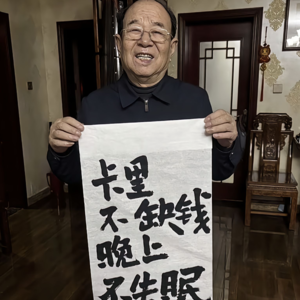 卡里
不缺钱
晚上
不失眠